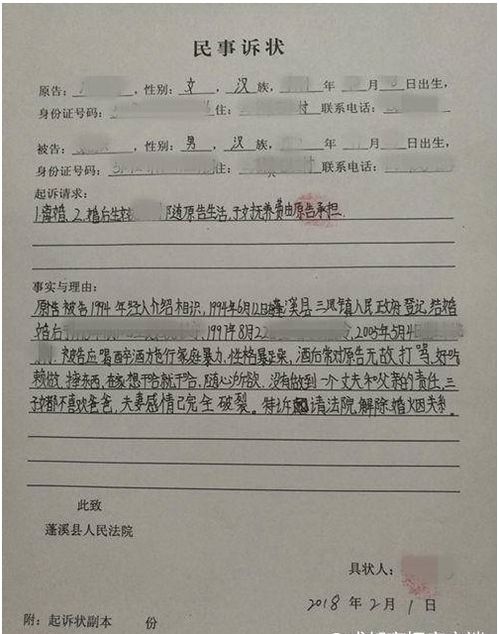 民事诉状
原告: 性别: 女 , 汉 族, 年 月 日出生,
身份证号码: 住: 村 联系电话:
被告: 性别: 男 , 汉 族, 年 月 日出生,
身份证号码: 住: 联系电话:
起诉请求:
1.离婚、2、婚后生 随原告生活,子女抚养费由原告承担.
事实与理由:
原告被告1994年经人介绍相识,1994年6月12日蓬溪县三凤镇人民政府登记,结婚
婚后 , 1997年8月22 , 2005年5月4
被告应喝醉酒方施行家庭暴力,性格暴走桀,酒后常对原告无故打骂、好吃
懒做、摔东西,在家想干啥就干啥,随心所欲、没有做到一个丈夫和父亲的责任,三
子女都不喜欢爸爸,夫妻感情已完全破裂。特诉 请法院,解除婚姻关系。
此致
蓬溪县人民法院
具状人:
2018 年 2 月 1 日
附:起诉状副本 份